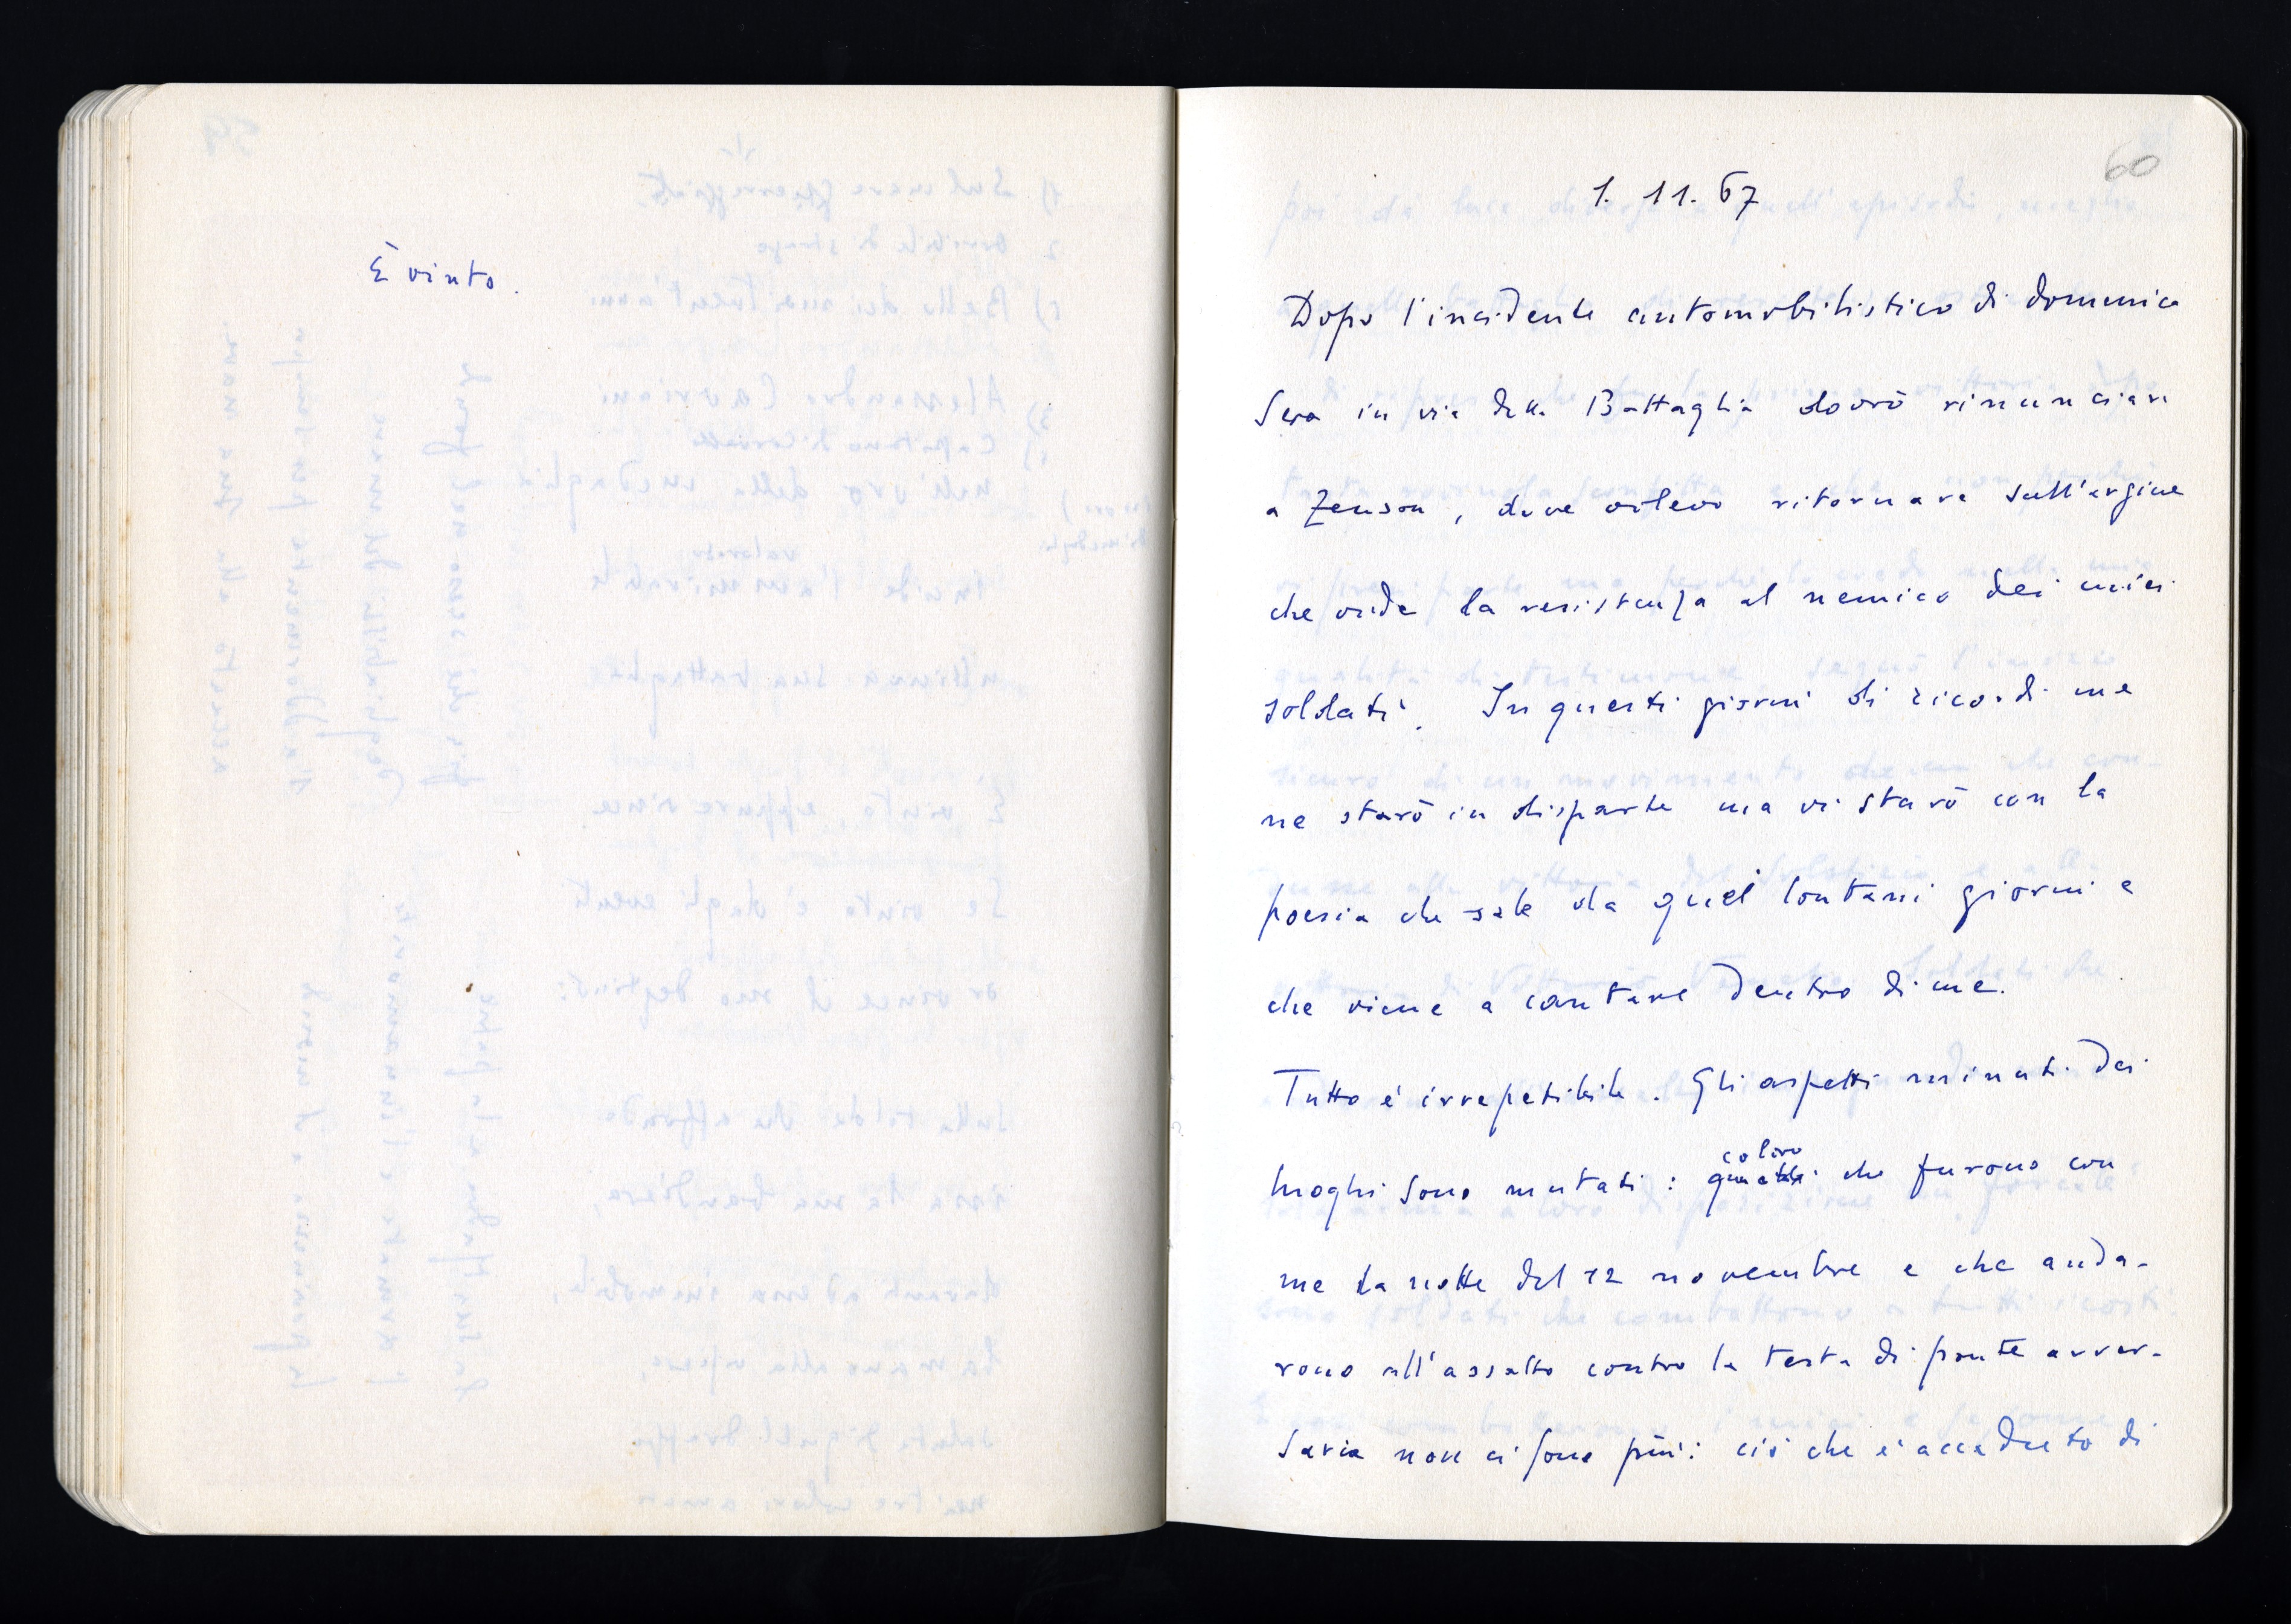 È vinto.
60
1. 11. 67
Dopo l'incidente automobilistico di domenica
sera in via della Battaglia dovrò rinunciare
a Zenson, dove volevo ritornare sull'argine
che vide la resistenza al nemico dei miei
soldati. In questi giorni di ricordi me
ne starò in disparte ma vi starò con la
poesia che sale da quei lontani giorni e
che viene a cantare dentro di me.
Tutto è irrepetibile. Gli aspetti minuti dei
luoghi sono mutati: coloro che furono con
me la notte del 12 novembre e che anda-
rono all'assalto contro la testa di ponte avver-
saria non ci sono più: ciò che è accaduto di